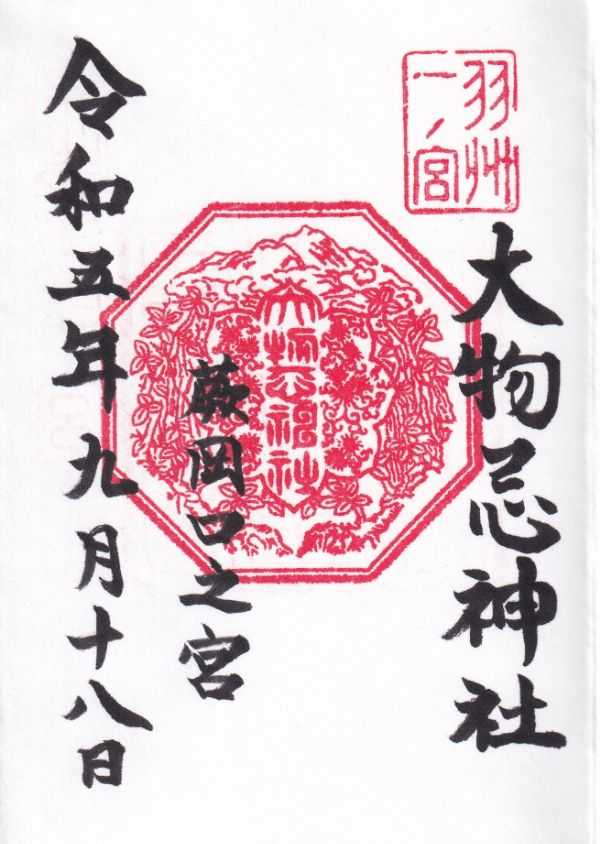 羽州
一ノ宮
大物忌神社
大物忌神社
蕨岡口之宮
令和五年九月十八日